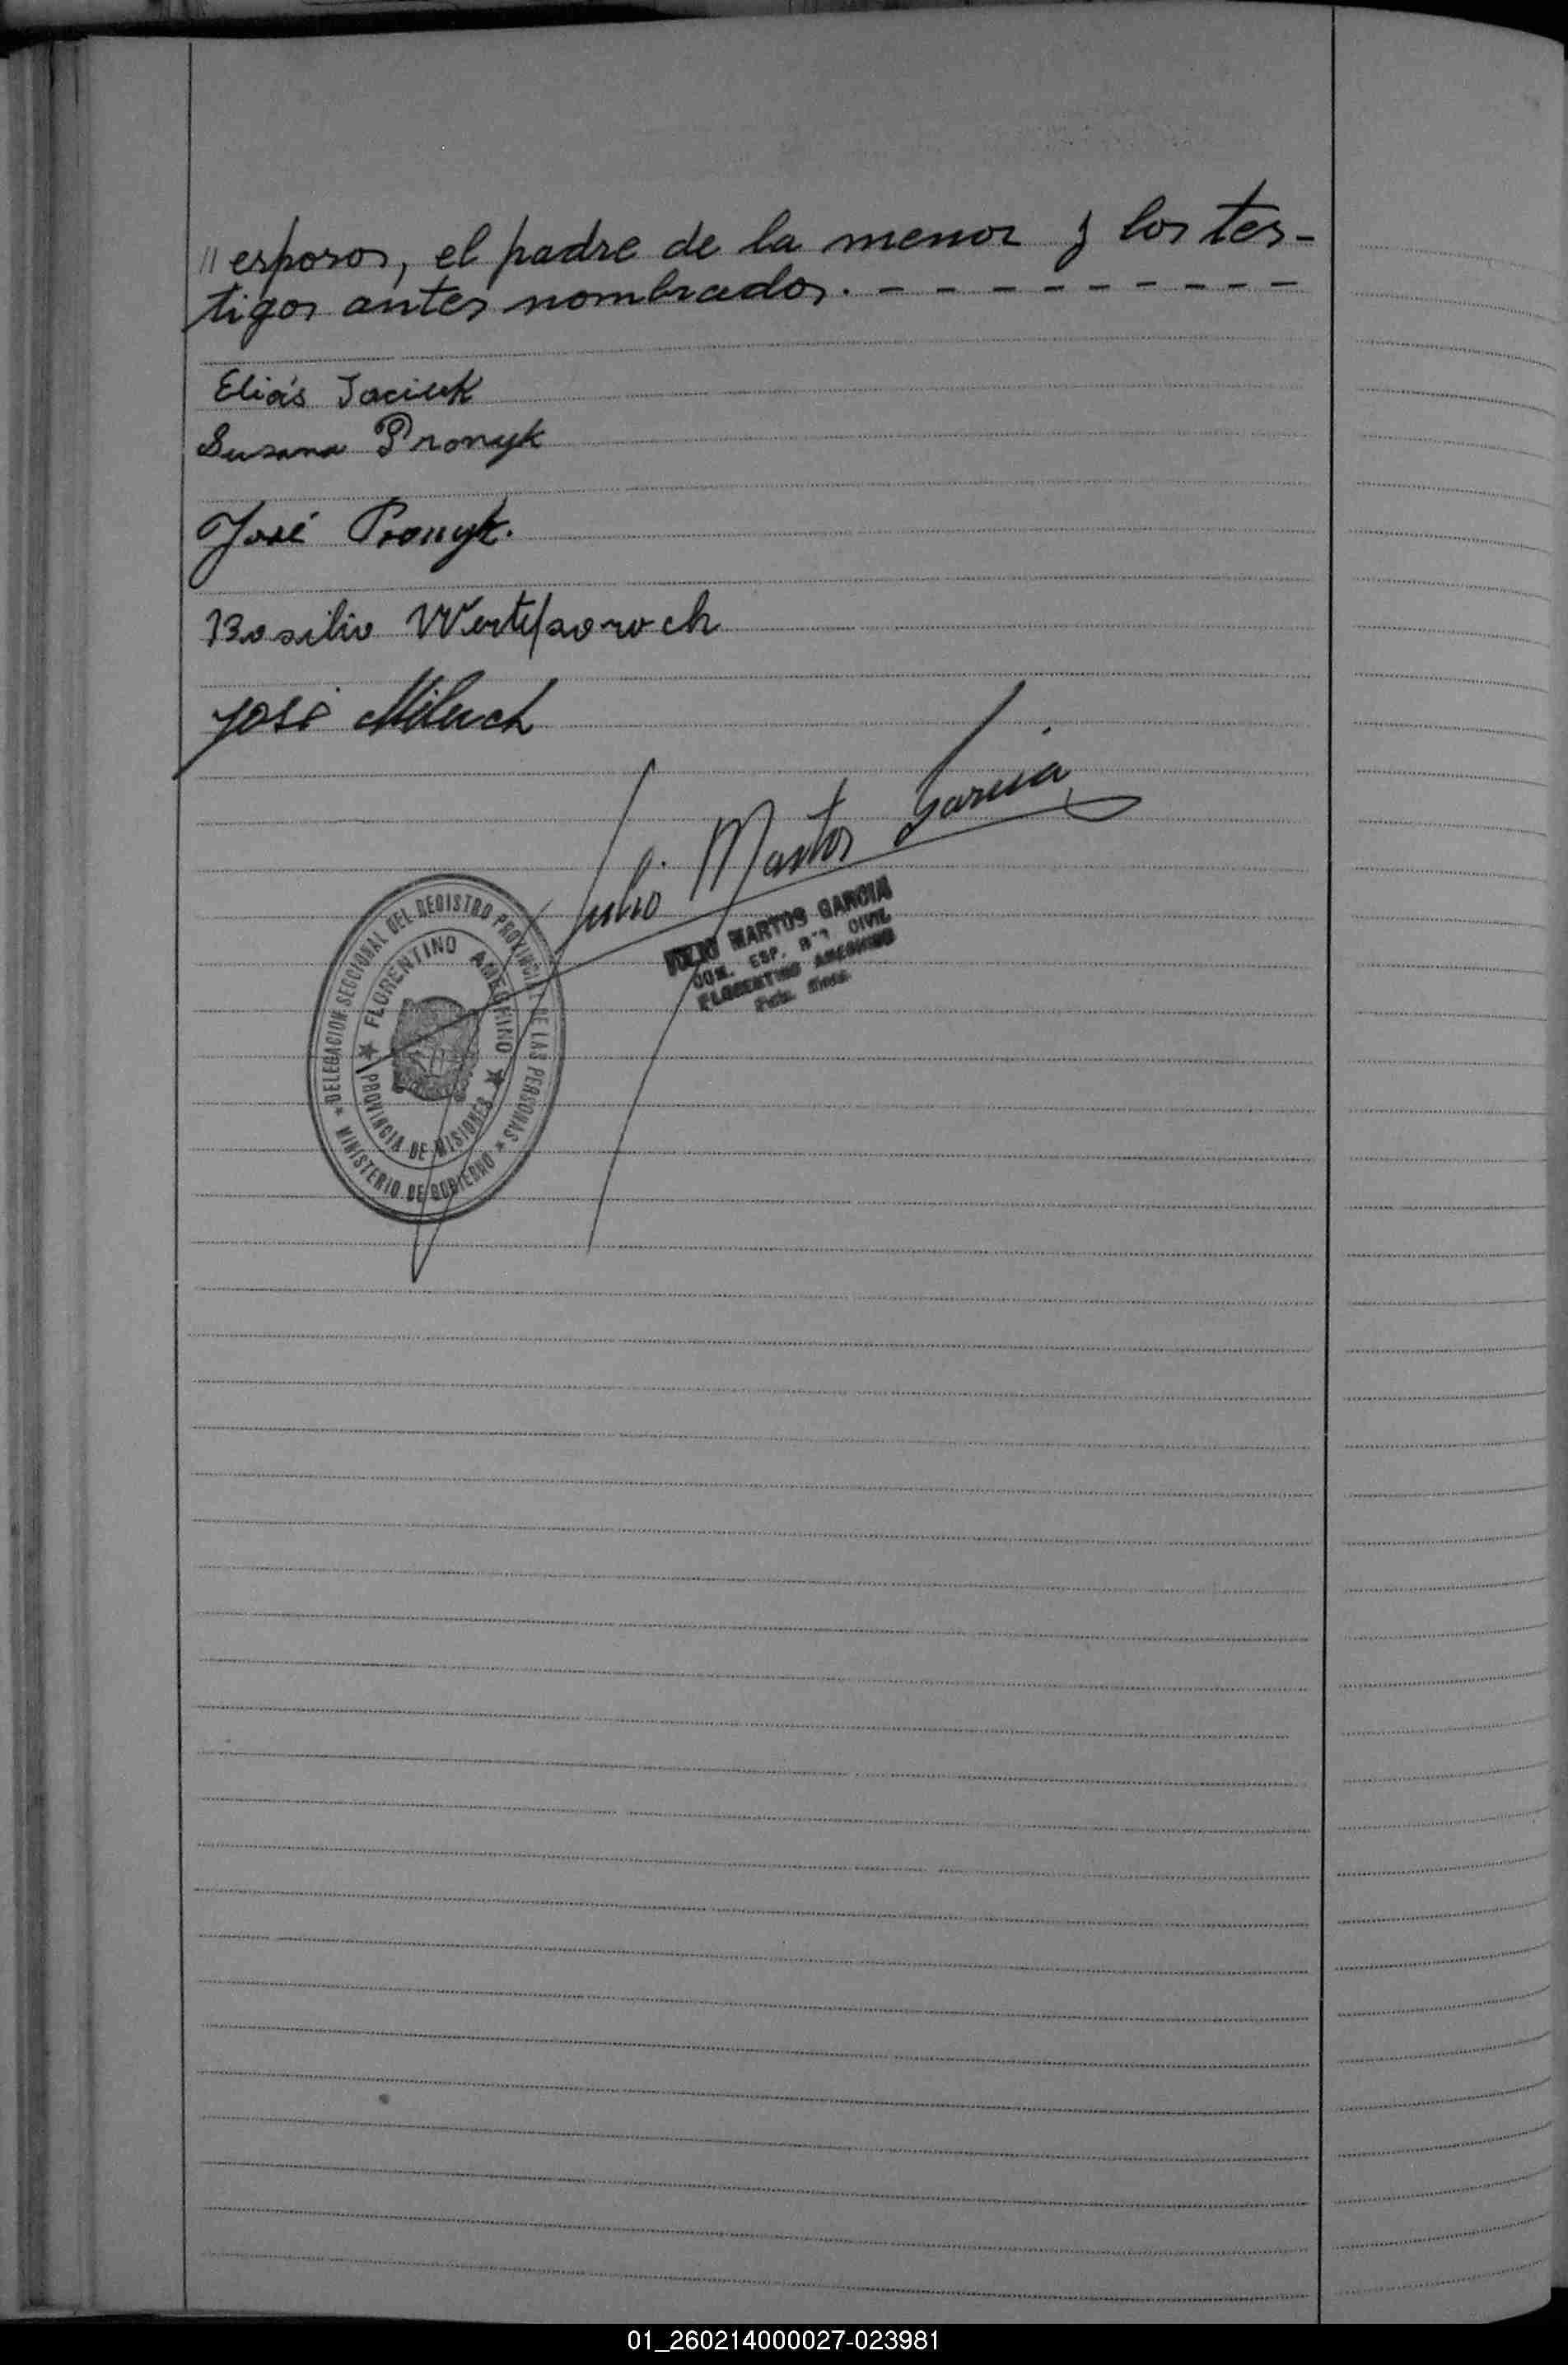 // esposos, el padre de la menor y los tes-
tigos antes nombrados. - - - - - - - - - -
Eliás Jaciuk
Susana Pronyk
José Pronyk.
Basilio
José Miluch
Julio Martos Garcia
JULIO MARTOS GARCIA
COM. ESP. CIVIL
FLORENTINO AMEGHINO
DELEGACION SECCIONAL DEL REGISTRO PROVINCIAL DE LAS PERSONAS
★ MINISTERIO DE GOBIERNO ★
★ FLORENTINO AMEGHINO ★
PROVINCIA DE MISIONES
01_260214000027-023981